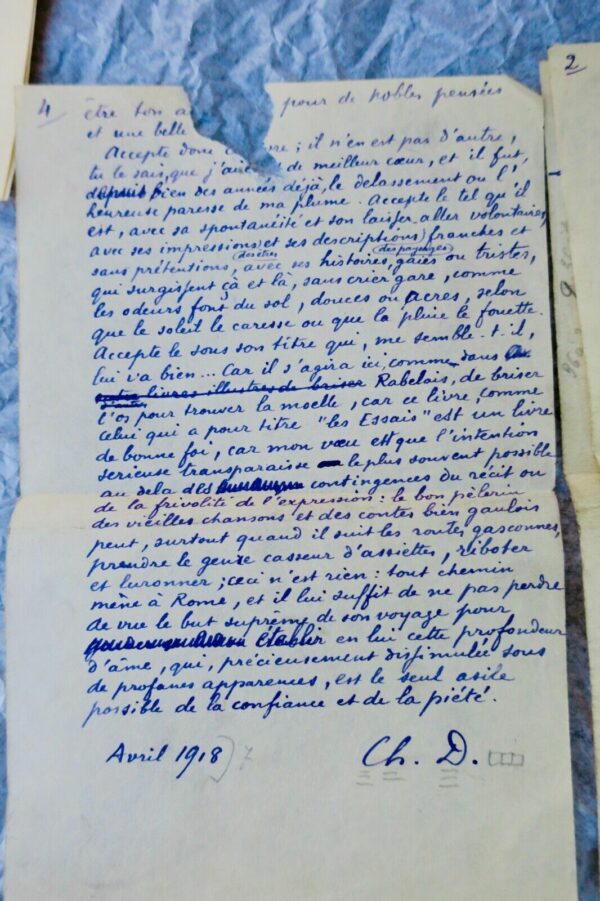 4
être bon a pour de nobles pensées
et une belle
Accepte donc ; il n'en est pas d'autre,
tu le sais, que j'aie de meilleur cœur, et il fut,
depuis bien des années déjà, le delassement ou l'
heureuse paresse de ma plume. Accepte le tel qu'il
est, avec sa spontanéité et son laisser aller volontaires,
avec ses impressions et ses descriptions franches et
des êtres des paysages
sans prétentions, avec ses histoires, gaies ou tristes,
qui surgissent çà et là, sans crier gare, comme
les odeurs font du sol, douces ou acres, selon
que le soleil le caresse ou que la pluie le fouette.
Accepte le sous son titre qui, me semble-t-il,
lui va bien... Car il s'agira ici, comme dans
livres illustres de briser Rabelais, de briser
l'os pour trouver la moelle, car ce livre, comme
celui qui a pour titre "les Essais" est un livre
de bonne foi, car mon vœu est que l'intention
serieuse transparaisse le plus souvent possible
au dela des contingences du récit ou
de la frivolité de l'expression : le bon pèlerin
des vieilles chansons et des contes bien gaulois
peut, surtout quand il suit les routes gasconnes,
prendre le genre casseur d'assiettes, riboter
et luronner ; ceci n'est rien : tout chemin
mène à Rome, et il lui suffit de ne pas perdre
de vue le but suprême de son voyage pour
établir en lui cette profondeur
d'âme, qui, précieusement dissimulée sous
de profanes apparences, est le seul asile
possible de la confiance et de la piété.
Avril 1918) 7
Ch. D.
2